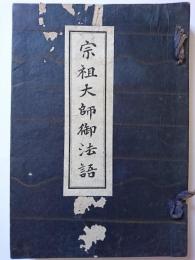 宗祖大師御法語